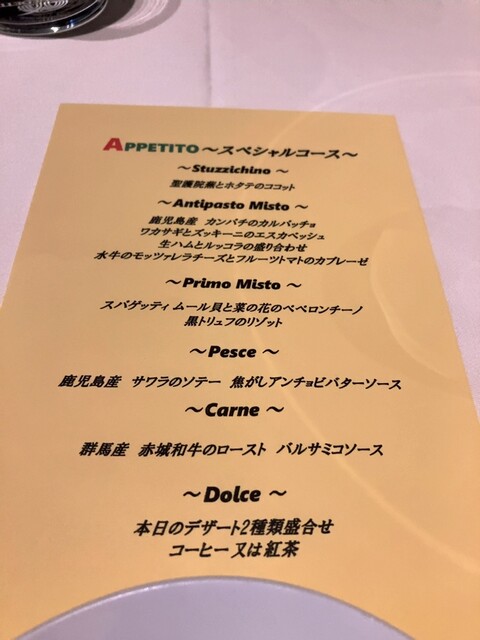 APPETITO～スペシャルコース～
～Stuzzichino ～
聖護院蕪とホタテのココット
～Antipasto Misto ～
鹿児島産 カンパチのカルパッチョ
ワカサギとズッキーニのエスカベッシュ
生ハムとルッコラの盛り合わせ
水牛のモッツァレラチーズとフルーツトマトのカプレーゼ
～Primo Misto ～
スパゲッティ ムール貝と菜の花のペペロンチーノ
黒トリュフのリゾット
～Pesce ～
鹿児島産 サワラのソテー 焦がしアンチョビバターソース
～Carne ～
群馬産 赤城和牛のロースト バルサミコソース
～Dolce ～
本日のデザート2種類盛合せ
コーヒー又は紅茶